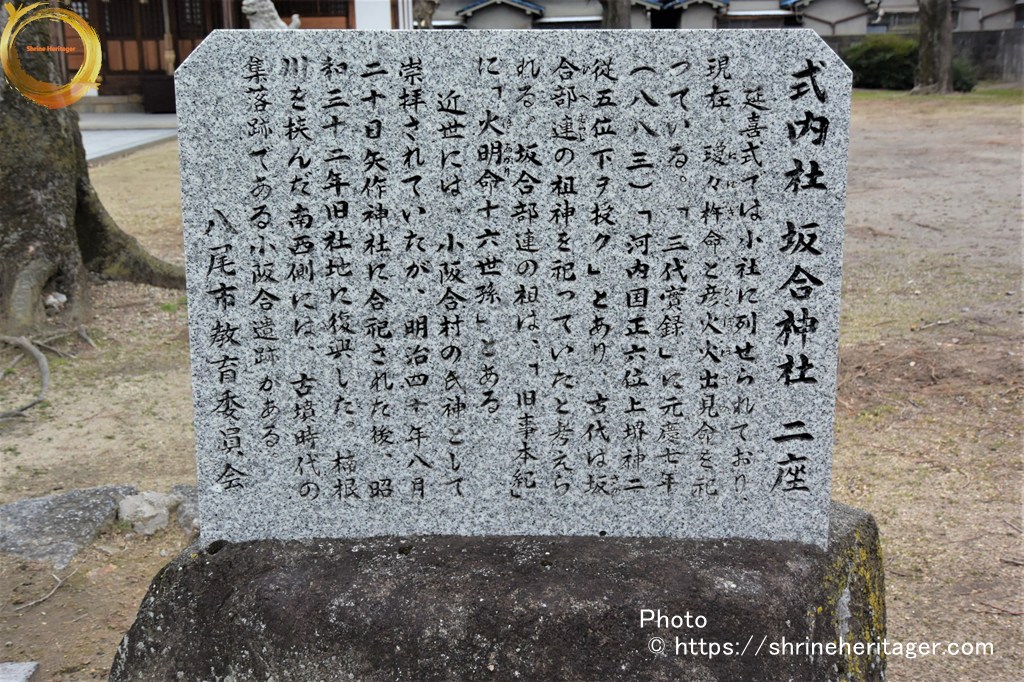 Shrine Heritager
式内社 坂合神社 二座
延喜式では小社に列せられており、
現在、瓊々杵命と彦火火出見命を祀
っている。「三代實録」に元慶七年
(八八三)「河内国正六位上坂合神ニ
従五位下ヲ授ク」とあり、古代は坂
合部連の祖神を祀っていたと考えら
れる。坂合部連の祖は、「旧事本紀」
に「火明命十六世孫」とある。
近世には、小阪合村の氏神として
崇拝されていたが、明治四十年八月
二十日矢作神社に合祀された後、昭
和三十二年旧社地に復興した。楠根
川を挟んだ南西側には、古墳時代の
集落跡である小阪合遺跡がある。
八尾市教育委員会
Photo
© https://shrineheritager.com